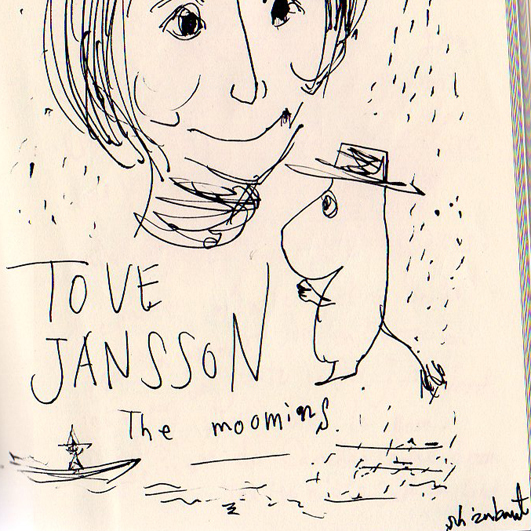 TOVE
JANSSON
The moomins.